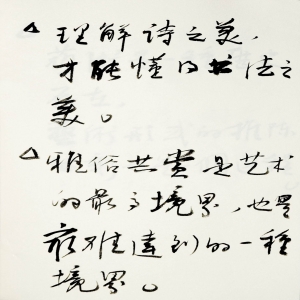 △ 理解诗之美，
才能懂得书法之
美。
△ 雅俗共赏是艺术
的最高境界，也是
最难达到的一种
境界。